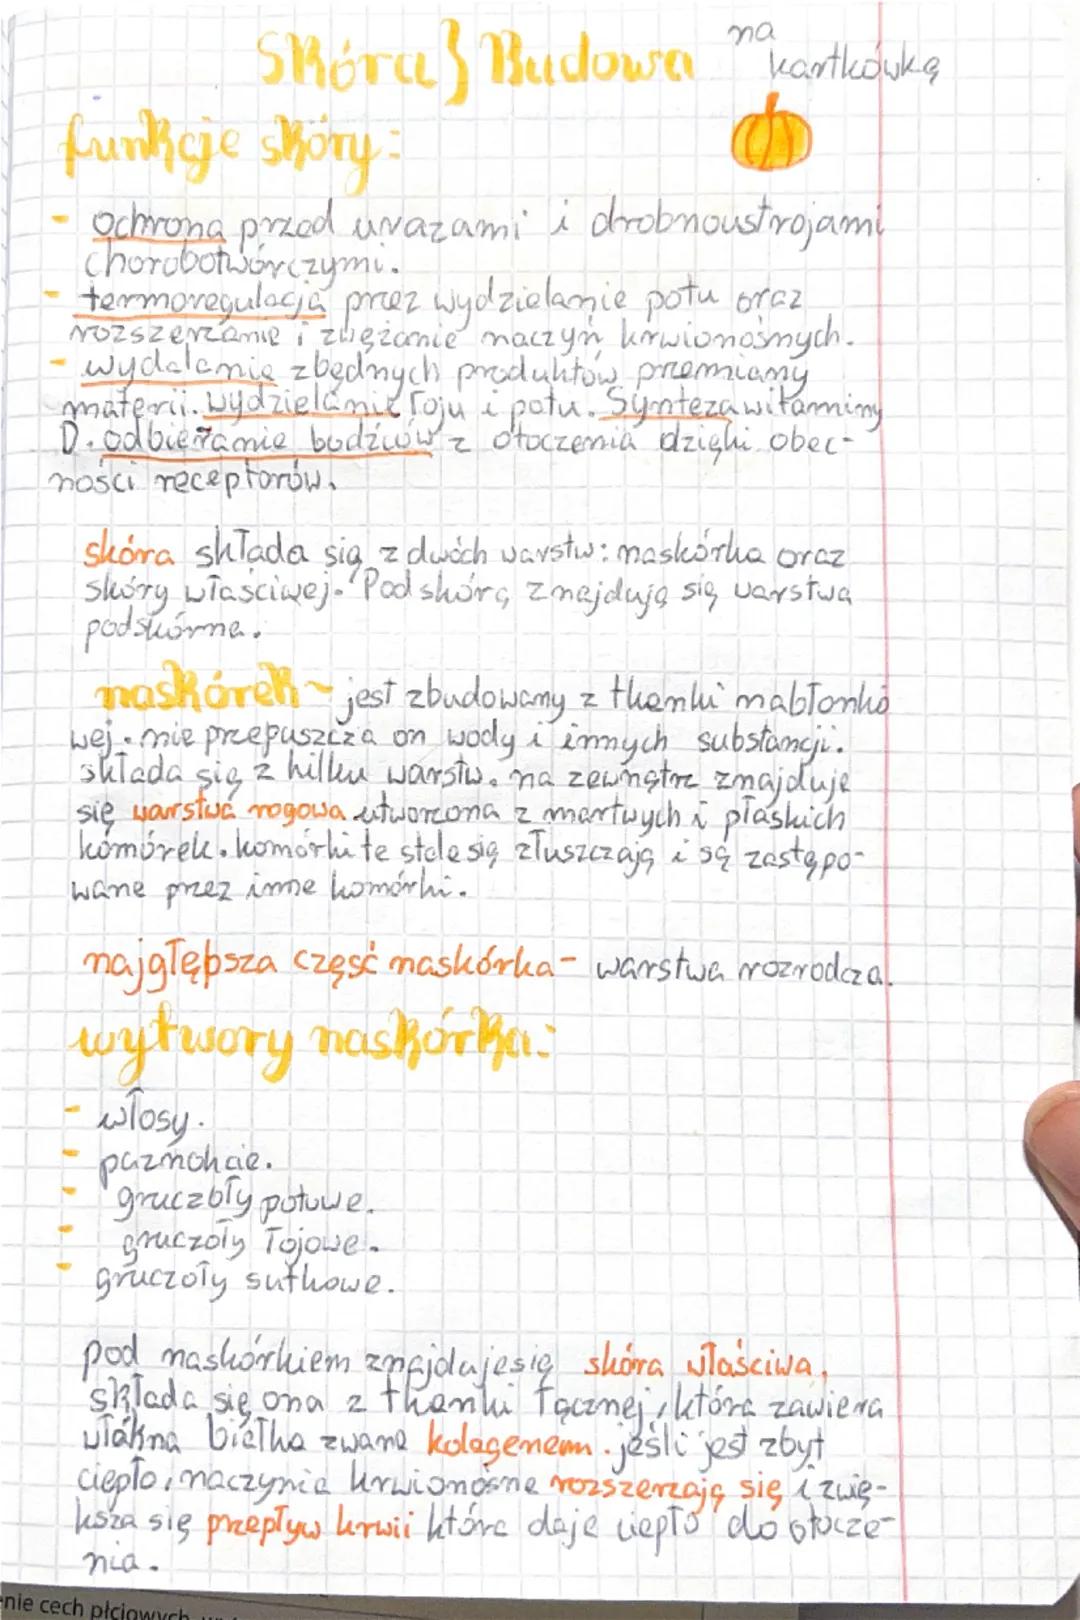 Skóra } Budowa na
kartkówkę
funkcje skóry:
- ochrona przed urazami i drobnoustrojami
chorobotwórczymi.
- termoregulacja przez wydzielanie potu oraz
rozszerzanie i zwężanie naczyń krwionośnych.
- wydalanie zbędnych produktów przemiany
materii. wydzielanie łoju i potu. Synteza witaminy
D. odbieranie bodźców z otoczenia dzięki obec-
ności receptorów.
skóra składa się z dwóch warstw: naskórka oraz
skóry właściwej. Pod skórą znajdują się warstwa
podskórna.
naskórek ~ jest zbudowany z tkanki nabłonko
wej. nie przepuszcza on wody i innych substancji.
składa się z kilku warstw. na zewnątrz znajduje
się warstwa rogowa utworzona z martwych i płaskich
komórek. komórki te stale się złuszczają i są zastępo-
wane przez inne komórki.
najgłębsza część naskórka - warstwa rozrodcza.
wytwory naskórka:
- włosy.
- paznokcie.
- gruczoły potowe.
- gruczoły łojowe.
- gruczoły sutkowe.
pod naskórkiem znajduje się skóra właściwa,
składa się ona z tkanki łącznej, która zawiera
włókna białka zwane kolagenem. jeśli jest zbyt
ciepło, naczynia krwionośne rozszerzają się i zwię-
ksza się przepływ krwii która daje ciepło do otocze-
nia.
enie cech płciowych